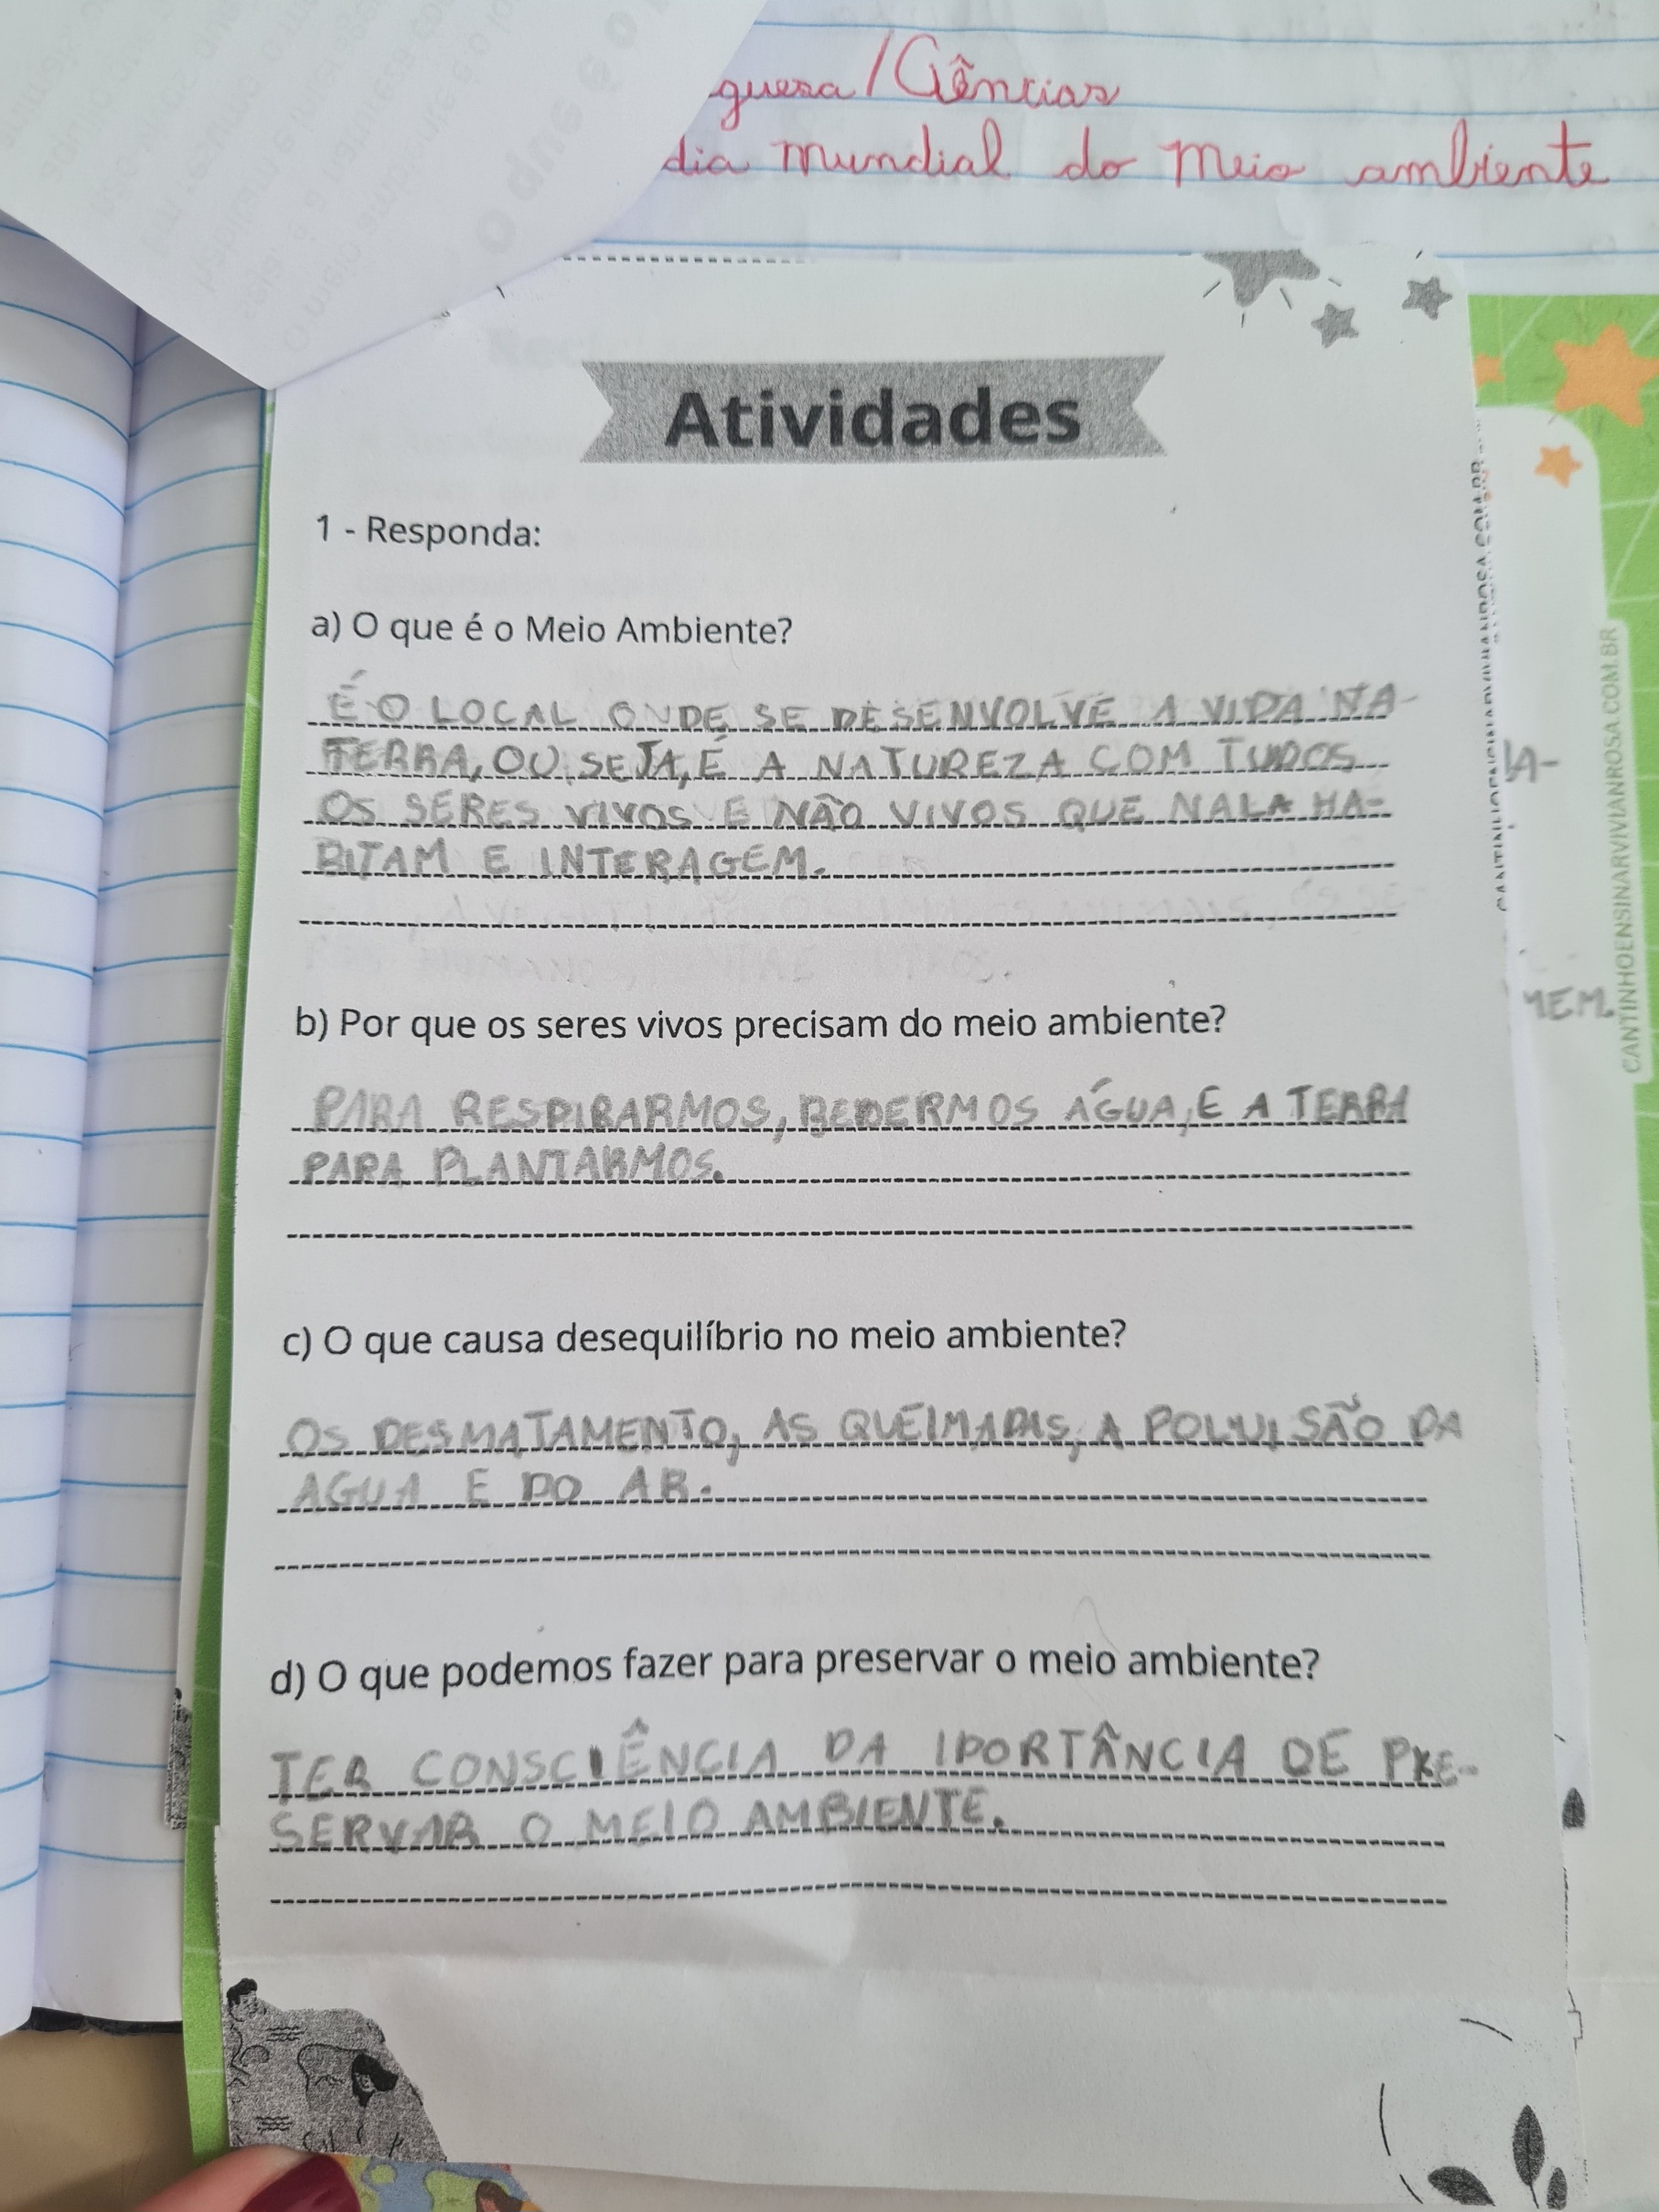 guesa / Ciências
dia mundial do meio ambiente
O que é o
Atividades
1 - Responda:
a) O que é o Meio Ambiente?
É O LOCAL ONDE SE DESENVOLVE A VIDA NA
TERRA, OU SEJA, É A NATUREZA COM TUDOS
OS SERES VIVOS E NÃO VIVOS QUE NALA HA-
BITAM E INTERAGEM.
b) Por que os seres vivos precisam do meio ambiente?
PARA RESPIRARMOS, BEDERMOS ÁGUA, E A TERRA
PARA PLANTARMOS.
c) O que causa desequilíbrio no meio ambiente?
OS DESMATAMENTO, AS QUEIMADAS, A POLUISÃO DA
AGUA E DO AR.
d) O que podemos fazer para preservar o meio ambiente?
TER CONSCIÊNCIA DA IPORTÂNCIA DE PRE-
SERVAR O MEIO AMBIENTE.
CANTINHOENSINARVIVIANROSA.COM.BR